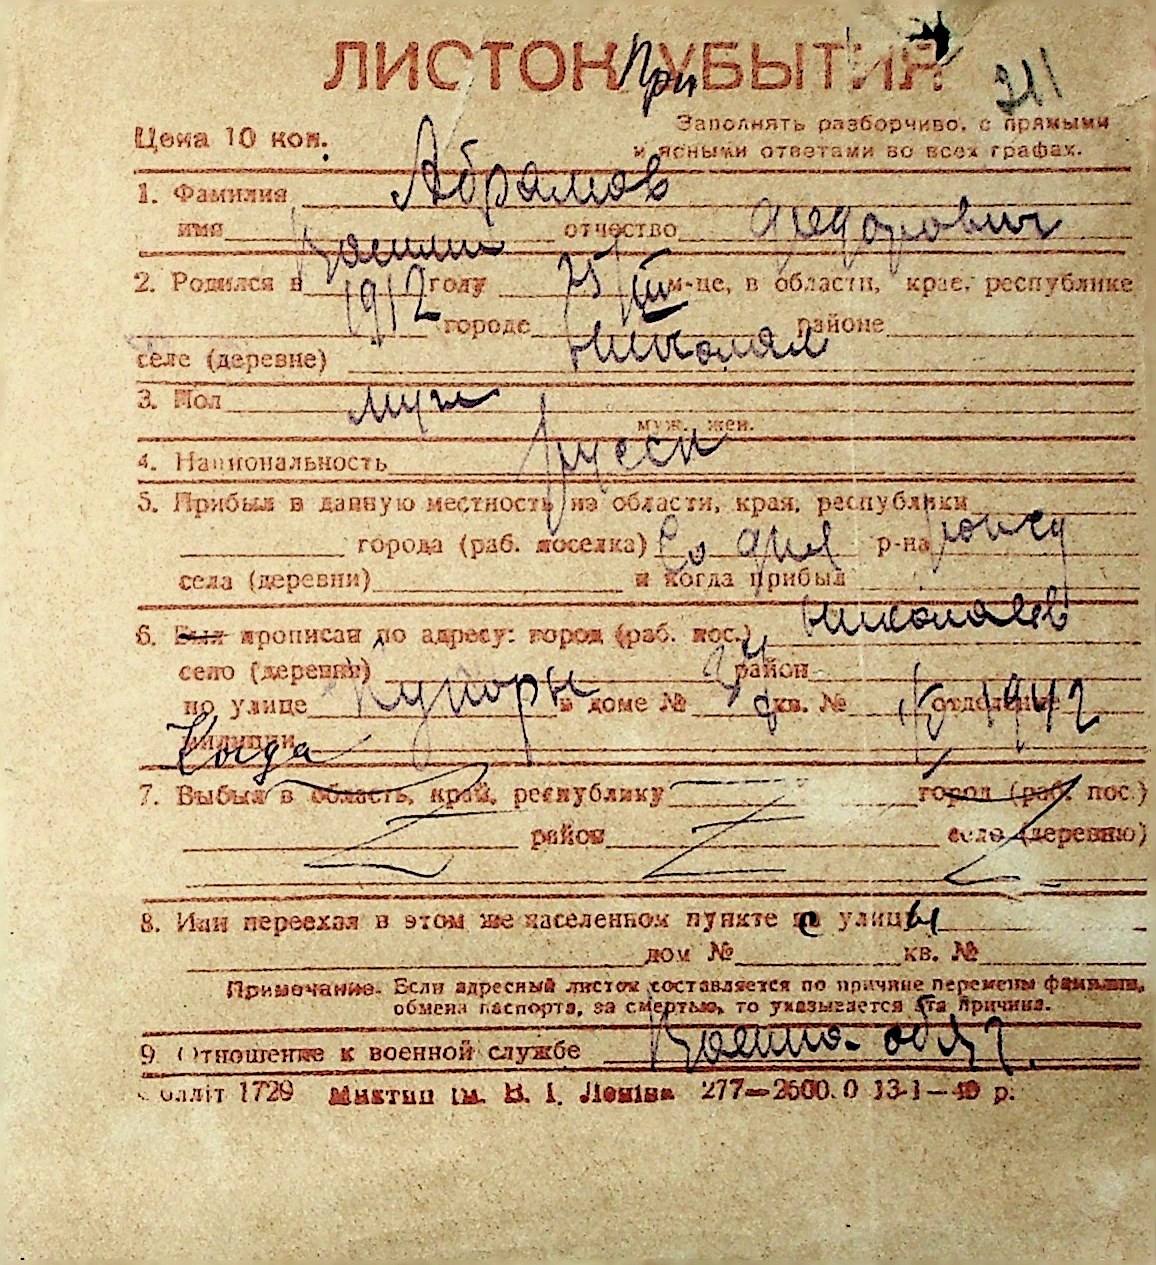 ЛИСТОК При УБЫТИЯ
211
Цена 10 коп.
Заполнять разборчиво, с прямыми
и ясными ответами во всех графах.
1. Фамилия Абрамов
имя Василий отчество Федорович
2. Родился в 1912 году 25/III м-це, в области, крае, республике
городе Николаев районе
селе (деревне)
3. Пол муж
муж. жен.
4. Национальность русск
5. Прибыл в данную местность из области, края, республики
города (раб. поселка) р-на
села (деревни) и когда прибыл
6. Был прописан по адресу: город (раб. пос.) Николаев
село (деревня) район
по улице в доме № кв. № отделение 1942
милиции Когда
7. Выбыл в область, край, республику город (раб. пос.)
район село (деревню)
8. Или переехал в этом же населенном пункте с улицы
дом № кв. №
Примечание. Если адресный листок составляется по причине перемены фамилии,
обмена паспорта, за смертью, то указывается эта причина.
9. Отношение к военной службе Военно-обяз.
1729 Миктип ім. В. І. Леніна 277—2500.0 13-1—40 р.